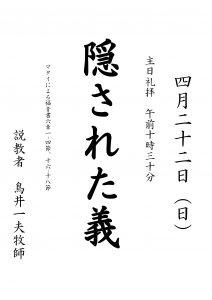 四月二十二日（日）
主日礼拝　午前十時三十分
隠された義
マタイによる福音書六章一-四節、十六-十八節
説教者　鳥井一夫牧師